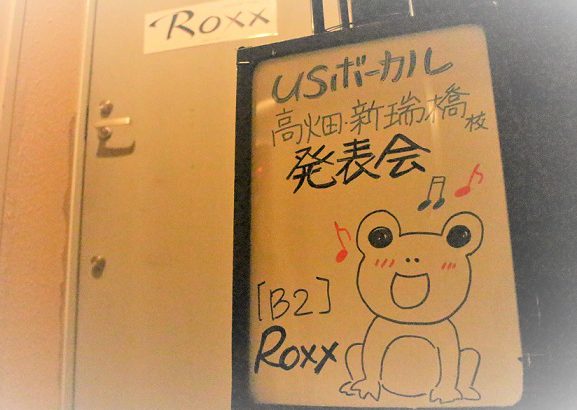 Roxx
USボーカル
高畑・新瑞橋校
発表会
[B2]
Roxx